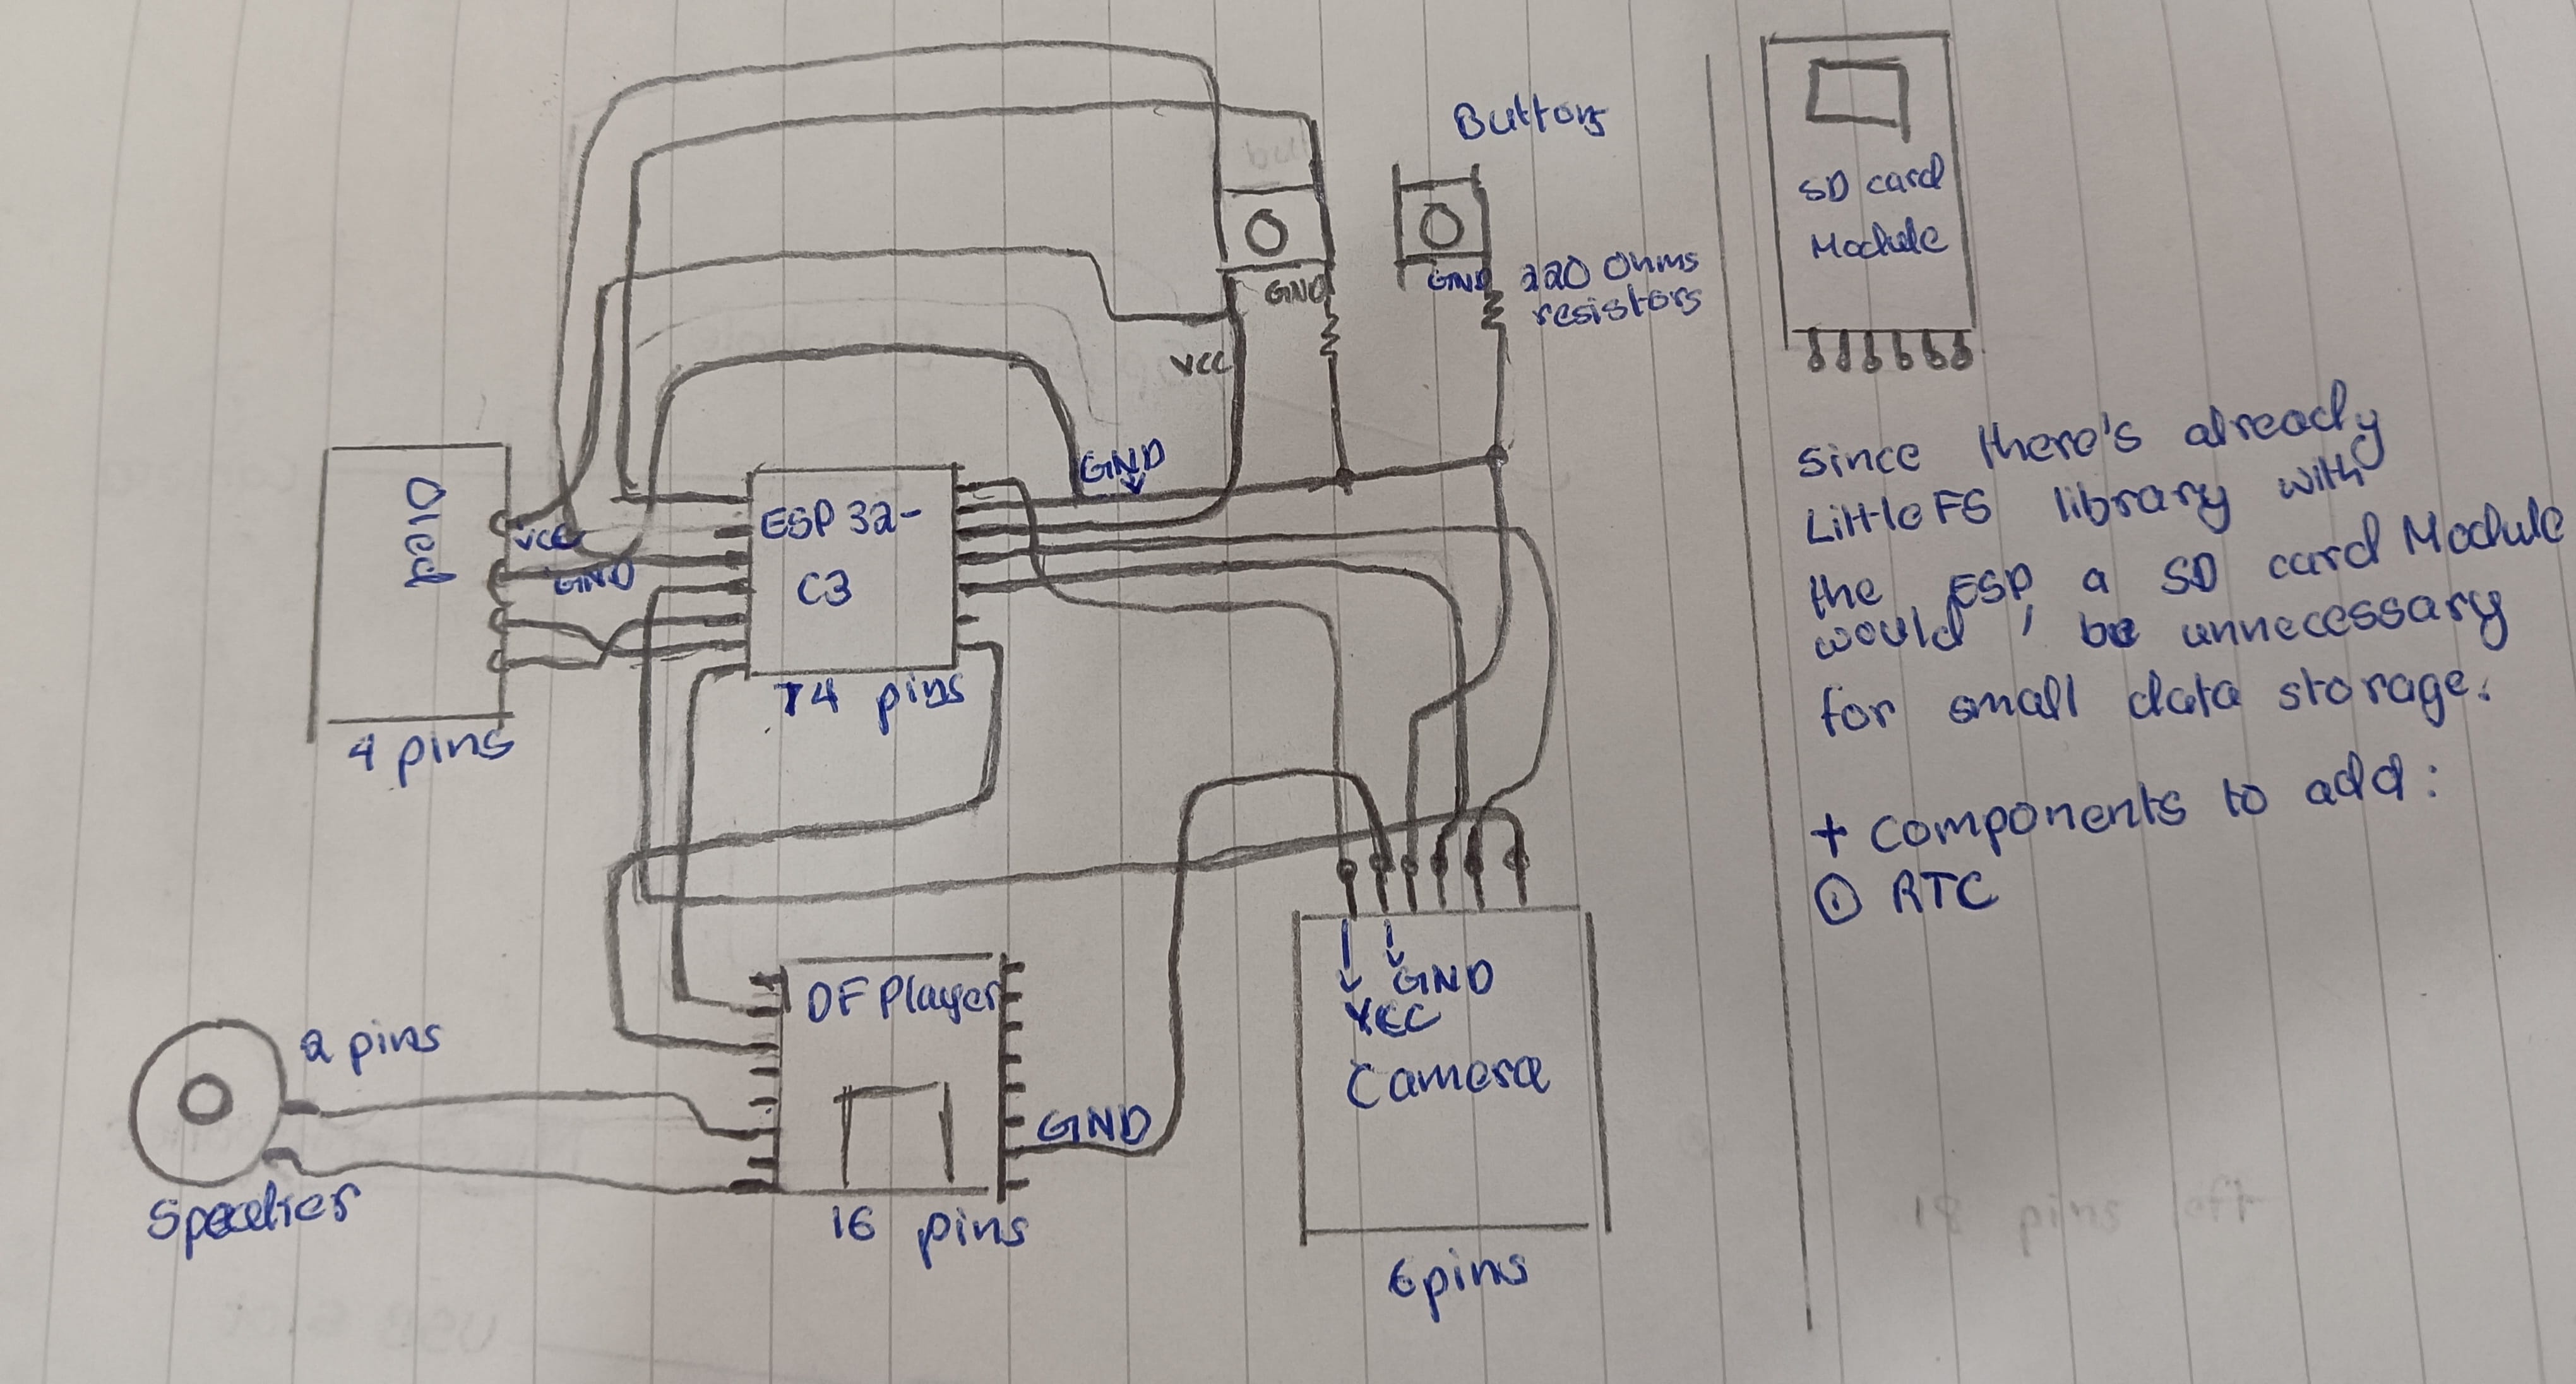 Button
SD card
Module
GND
GND
220 Ohms
resistors
VCC
GND
Oled
VCC
GND
ESP 32-
C3
14 pins
4 pins
since there's already
LittleFS library with
the ESP, a SD card Module
would be unnecessary
for small data storage.
+ Components to add:
⊙ RTC
DF Player
GND
16 pins
2 pins
Speaker
GND
VCC
Camera
6pins